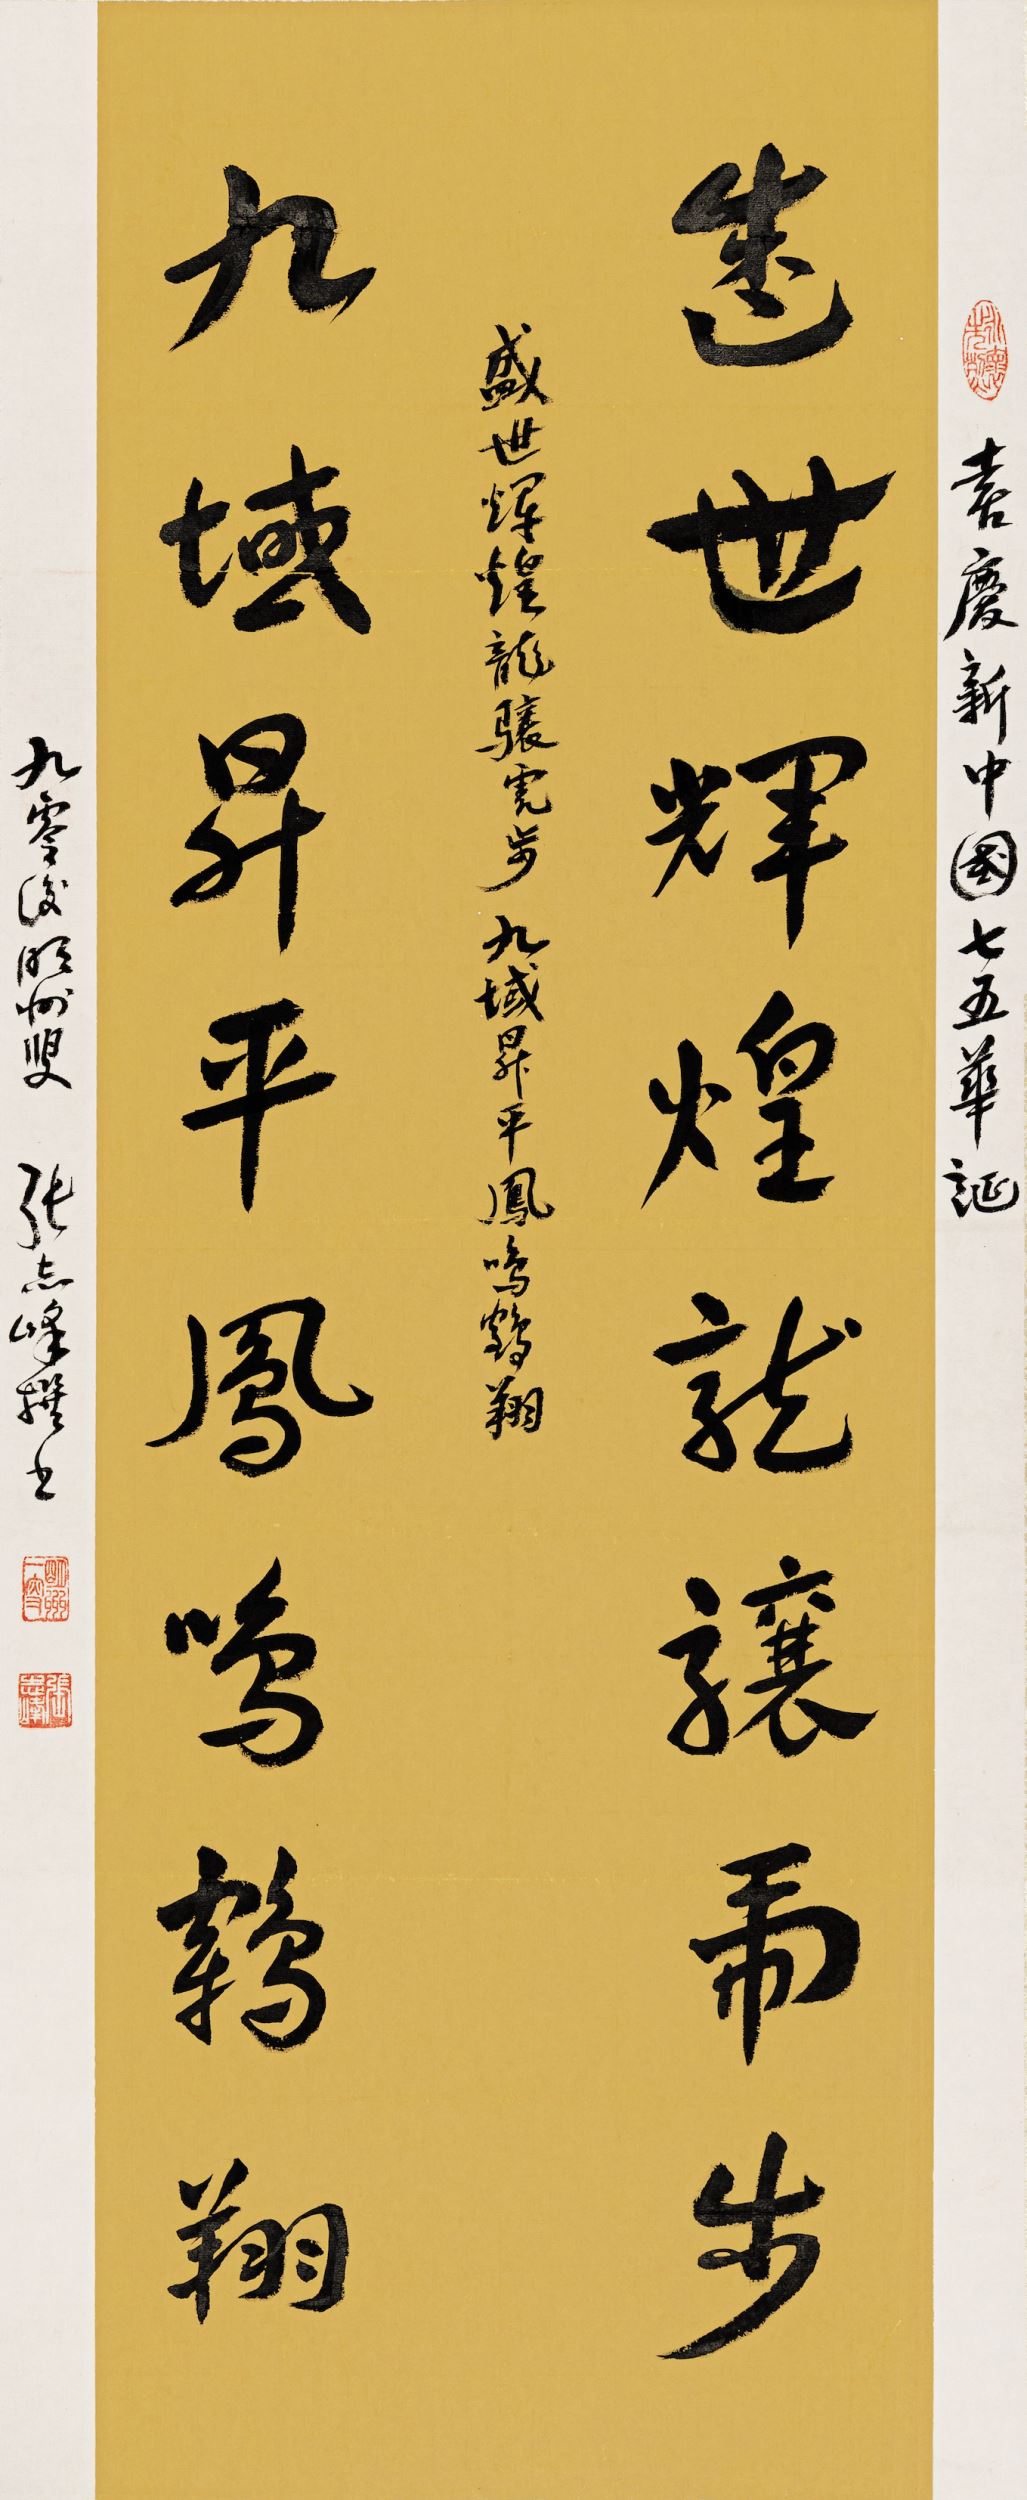 喜慶新中國七五華誕
盛世輝煌龍驤虎步
盛世輝煌龍驤虎步 九域昇平鳳鳴鶴翔
九域昇平鳳鳴鶴翔
九零後明州叟 張志峰撰書
張志峰